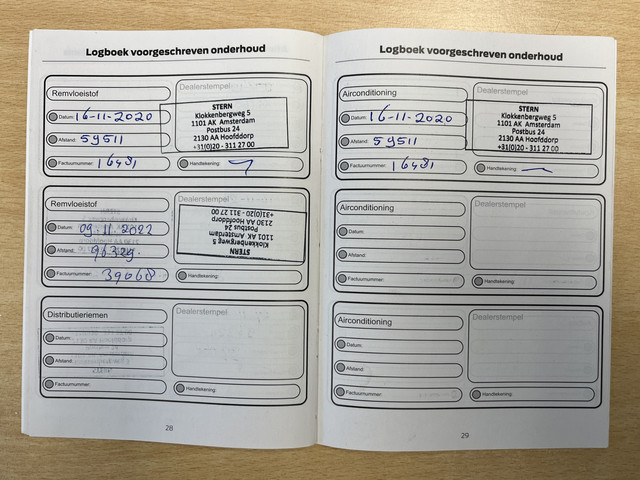 Logboek voorgeschreven onderhoud
Remvloeistof
Dealerstempel
Datum: 16-11-2020
Afstand: 59511
Factuurnummer: 16481
STERN
Klokkenbergweg 5
1101 AK Amsterdam
Postbus 24
2130 AA Hoofddorp
+31(0)20 - 311 27 00
Handtekening:
Remvloeistof
Dealerstempel
Datum: 09-11-2022
Afstand: 96329.
Factuurnummer: 39068
STERN
Klokkenbergweg 5
1101 AK Amsterdam
Postbus 24
2130 AA Hoofddorp
+31(0)20 - 311 27 00
Handtekening:
Distributieriemen
Dealerstempel
Datum:
Afstand:
Factuurnummer:
Handtekening:
28
Logboek voorgeschreven onderhoud
Airconditioning
Dealerstempel
Datum: 16-11-2020
Afstand: 59511
Factuurnummer: 16481
STERN
Klokkenbergweg 5
1101 AK Amsterdam
Postbus 24
2130 AA Hoofddorp
+31(0)20 - 311 27 00
Handtekening:
Airconditioning
Dealerstempel
Datum:
Afstand:
Factuurnummer:
Handtekening:
Airconditioning
Dealerstempel
Datum:
Afstand:
Factuurnummer:
Handtekening:
29